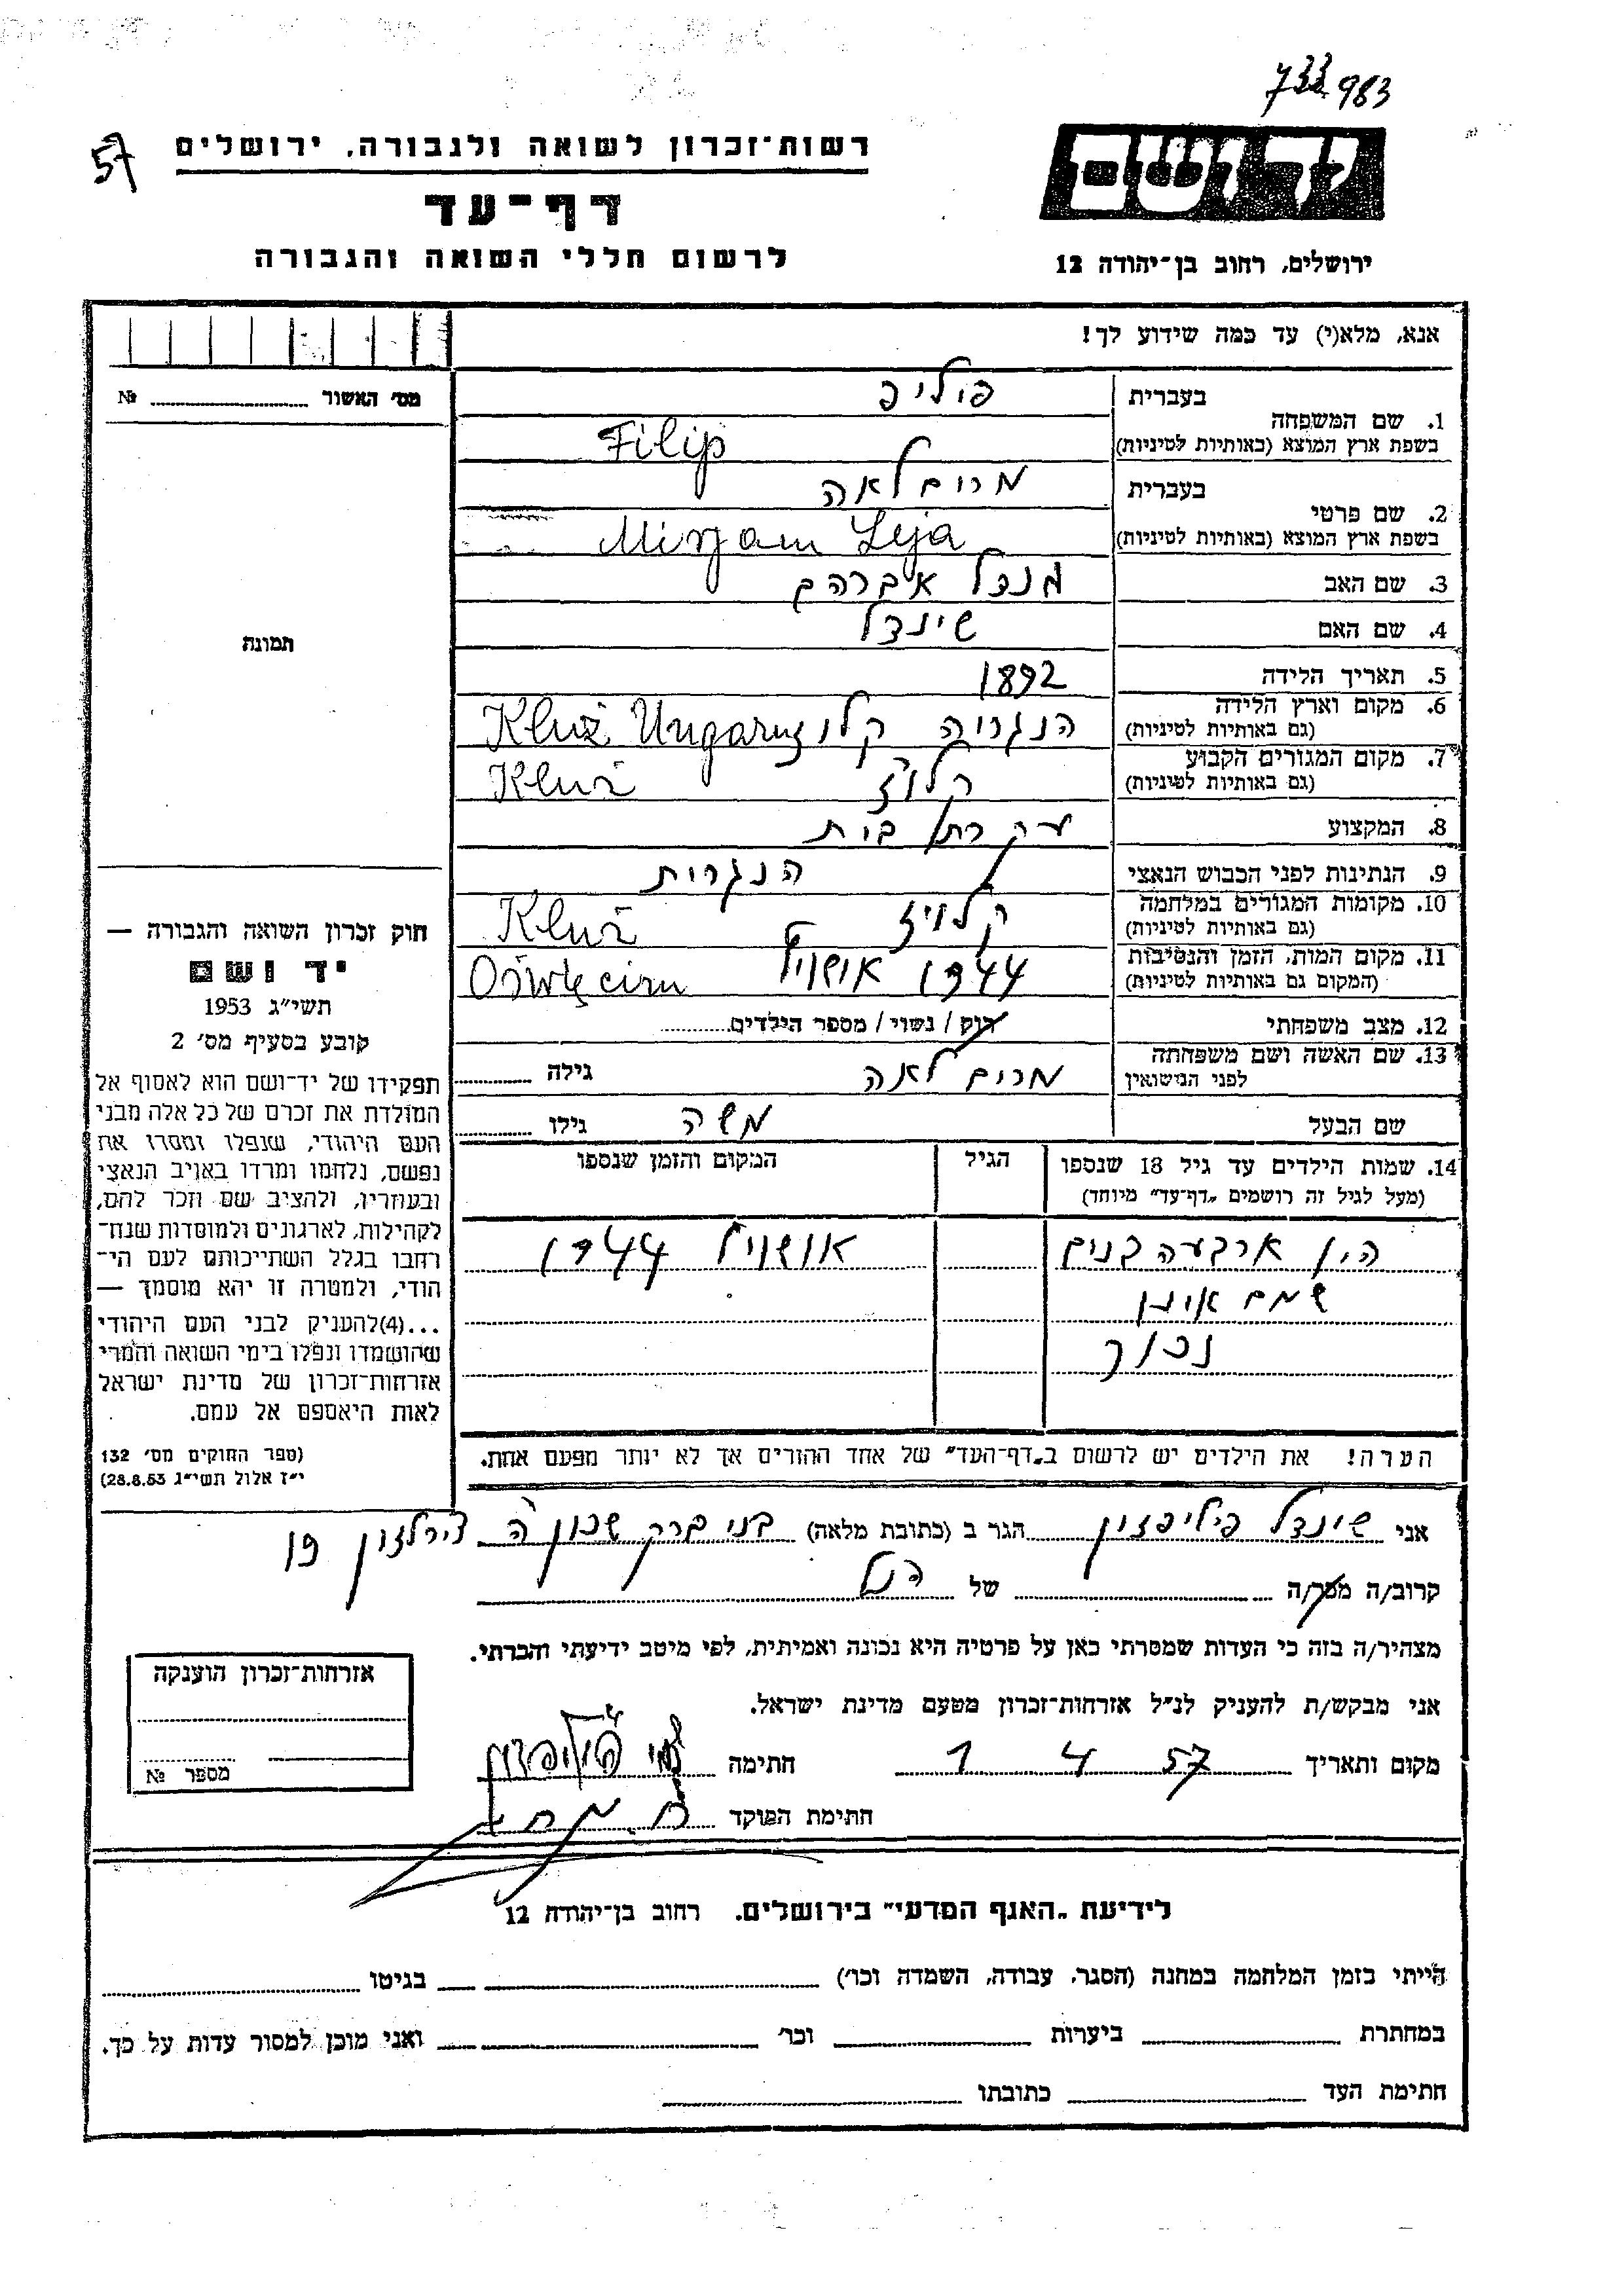 733 983
57
רשות־זכרון לשואה ולגבורה, ירושלים
יד ושם
דף־עד
לרשום חללי השואה והגבורה
ירושלים, רחוב בן־יהודה 12
אנא, מלא(י) עד כמה שידוע לך!
מס' האשור № 
בעברית פיליפ
1. שם המשפחה
בשפת ארץ המוצא (באותיות לטיניות) Filip
בעברית מרים לאה
2. שם פרטי
בשפת ארץ המוצא (באותיות לטיניות) Mirjam Leja
3. שם האב מנדל אברהם
4. שם האם שינדל
5. תאריך הלידה 1892
6. מקום וארץ הלידה הנגריה קלוז Kluż Ungaru
(גם באותיות לטיניות)
7. מקום המגורים הקבוע קלוז Kluż
(גם באותיות לטיניות)
8. המקצוע עקרת בית
9. הנתינות לפני הכבוש הנאצי הנגרית
10. מקומות המגורים במלחמה קלויז Kluż
(גם באותיות לטיניות)
11. מקום המות, הזמן והנסיבות 1944 אושויץ Oświęcim
(המקום גם באותיות לטיניות)
12. מצב משפחתי רוק / נשוי / מספר הילדים
13. שם האשה ושם משפחתה
לפני הנישואין מרים לאה גילה
שם הבעל משה גילו
14. שמות הילדים עד גיל 18 שנספו הגיל המקום והזמן שנספו
(מעל לגיל זה רושמים „דף־עד" מיוחד)
היו ארבעה בנים אושויץ 1944
שמם אינו
זכור
הערה! את הילדים יש לרשום ב„דף־העד" של אחד ההורים אך לא יותר מפעם אחת.
תמונה
חוק זכרון השואה והגבורה —
יד ושם
תשי״ג 1953
קובע בסעיף מס' 2
תפקידו של יד־ושם הוא לאסוף אל
המולדת את זכרם של כל אלה מבני
העם היהודי, שנפלו ומסרו את
נפשם, נלחמו ומרדו באויב הנאצי
ובעוזריו, ולהציב שם וזכר להם,
לקהילות, לארגונים ולמוסדות שנח־
רבו בגלל השתייכותם לעם הי־
הודי, ולמטרה זו יהא מוסמך —
...(4)להעניק לבני העם היהודי
שהושמדו ונפלו בימי השואה והמרי
אזרחות־זכרון של מדינת ישראל
לאות היאספם אל עמם.
(ספר החוקים מס' 132
י״ז אלול תשי״ג 28.8.53)
אני שינדל פיליפזון הגר ב (כתובת מלאה) בני ברק שכון ה
קרוב/ה מכר/ה של הנ״ל
מצהיר/ה בזה כי העדות שמסרתי כאן על פרטיה היא נכונה ואמיתית, לפי מיטב ידיעתי והכרתי.
אני מבקש/ת להעניק לנ״ל אזרחות־זכרון מטעם מדינת ישראל.
מקום ותאריך 57 4 1 חתימה פיליפזון
חתימת הפוקד
אזרחות־זכרון הוענקה
מספר №
לידיעת „האגף המדעי" בירושלים. רחוב בן־יהודה 12
הייתי בזמן המלחמה במחנה (הסגר, עבודה, השמדה וכו') בגיטו
במחתרת ביערות וכו' ואני מוכן למסור עדות על כך.
חתימת העד כתובתו